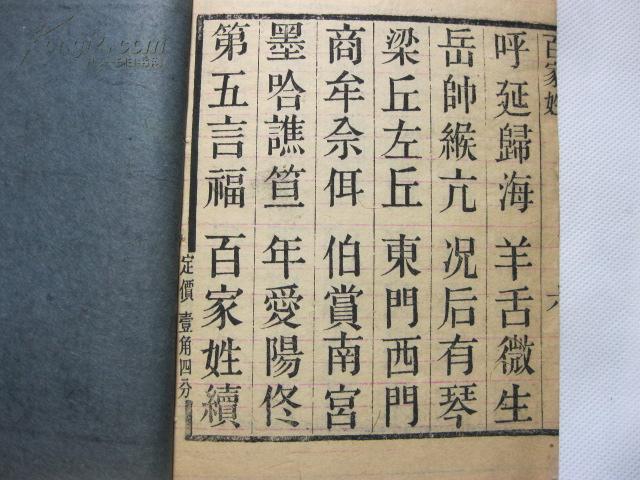 百家姓
六
呼延歸海 羊舌微生
岳帥緱亢 况后有琴
梁丘左丘 東門西門
商牟佘佴 伯賞南宮
墨哈譙笪 年愛陽佟
第五言福 百家姓續
定價壹角四分